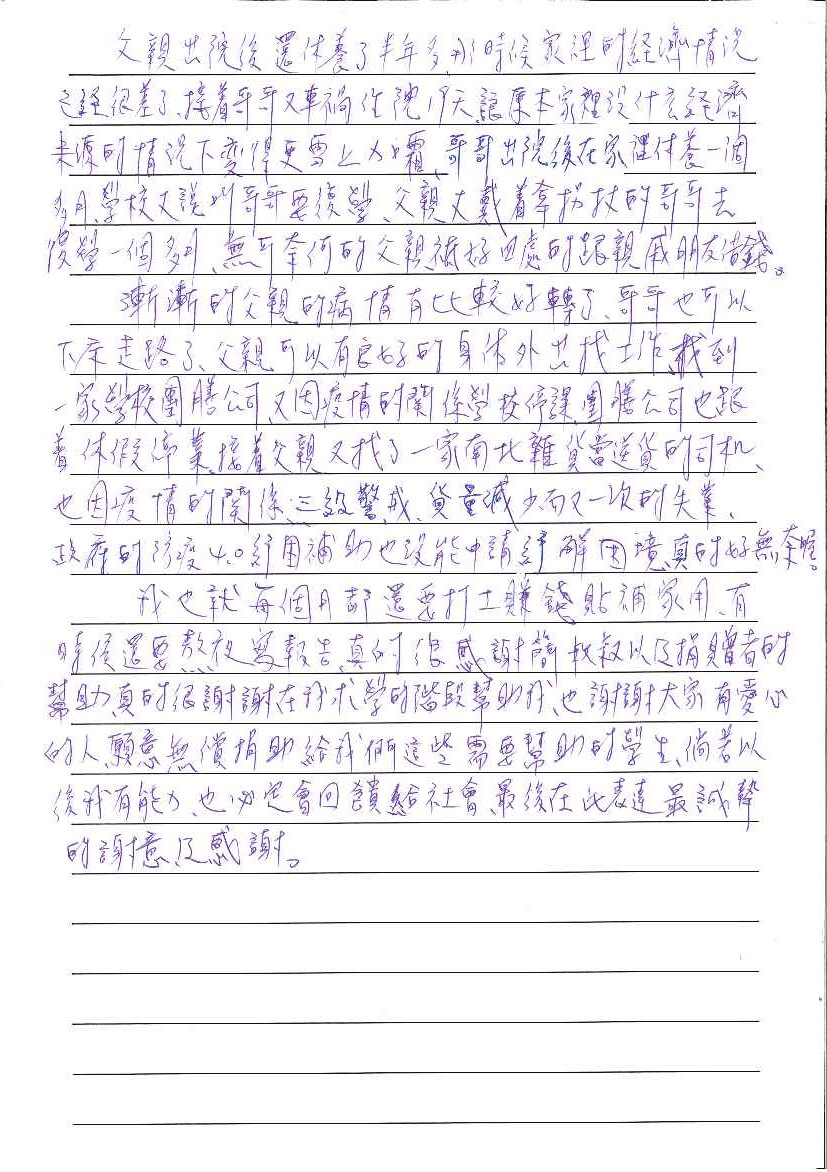 父親出院後還休養了半年多,那時候家裡的経濟情況
已経很差了、接着哥哥又車禍住院19天,讓原本家裡沒什么経濟
來源的情況下變得更雪上加霜、哥哥出院後在家裡休養一個
多月、學校又說叫哥哥要復學、父親又戴着拿拐杖的哥哥去
復學一個多月、無可奈何的父親祇好四處的跟親戚朋友借錢。
漸漸的父親的病情有比較好轉了、哥哥也可以
下床走路了、父親可以有良好的身体外出找工作、找到
一家學校團膳公司、又因疫情的關係學校停課、團膳公司也跟
着休假停業、接着父親又找了一家南北雜貨當送貨的司机、
也因疫情的關係、三級警戒、貨量減少而又一次的失業、
政府的防疫4.0紓困補助也沒能申請紓解困境,真的好無奈喔。
我也就每個月都還要打工賺錢貼補家用、有
時侯還要熬夜寫報告、真的很感謝簡叔叔以及捐贈者的
幫助、真的很謝謝在我求學的階段幫助我、也謝謝大家有愛心
的人、願意無償捐助給我們這些需要幫助的學生、倘若以
後我有能力、也必定會回饋給社會、最後在此表達最誠摯
的謝意、及感謝。